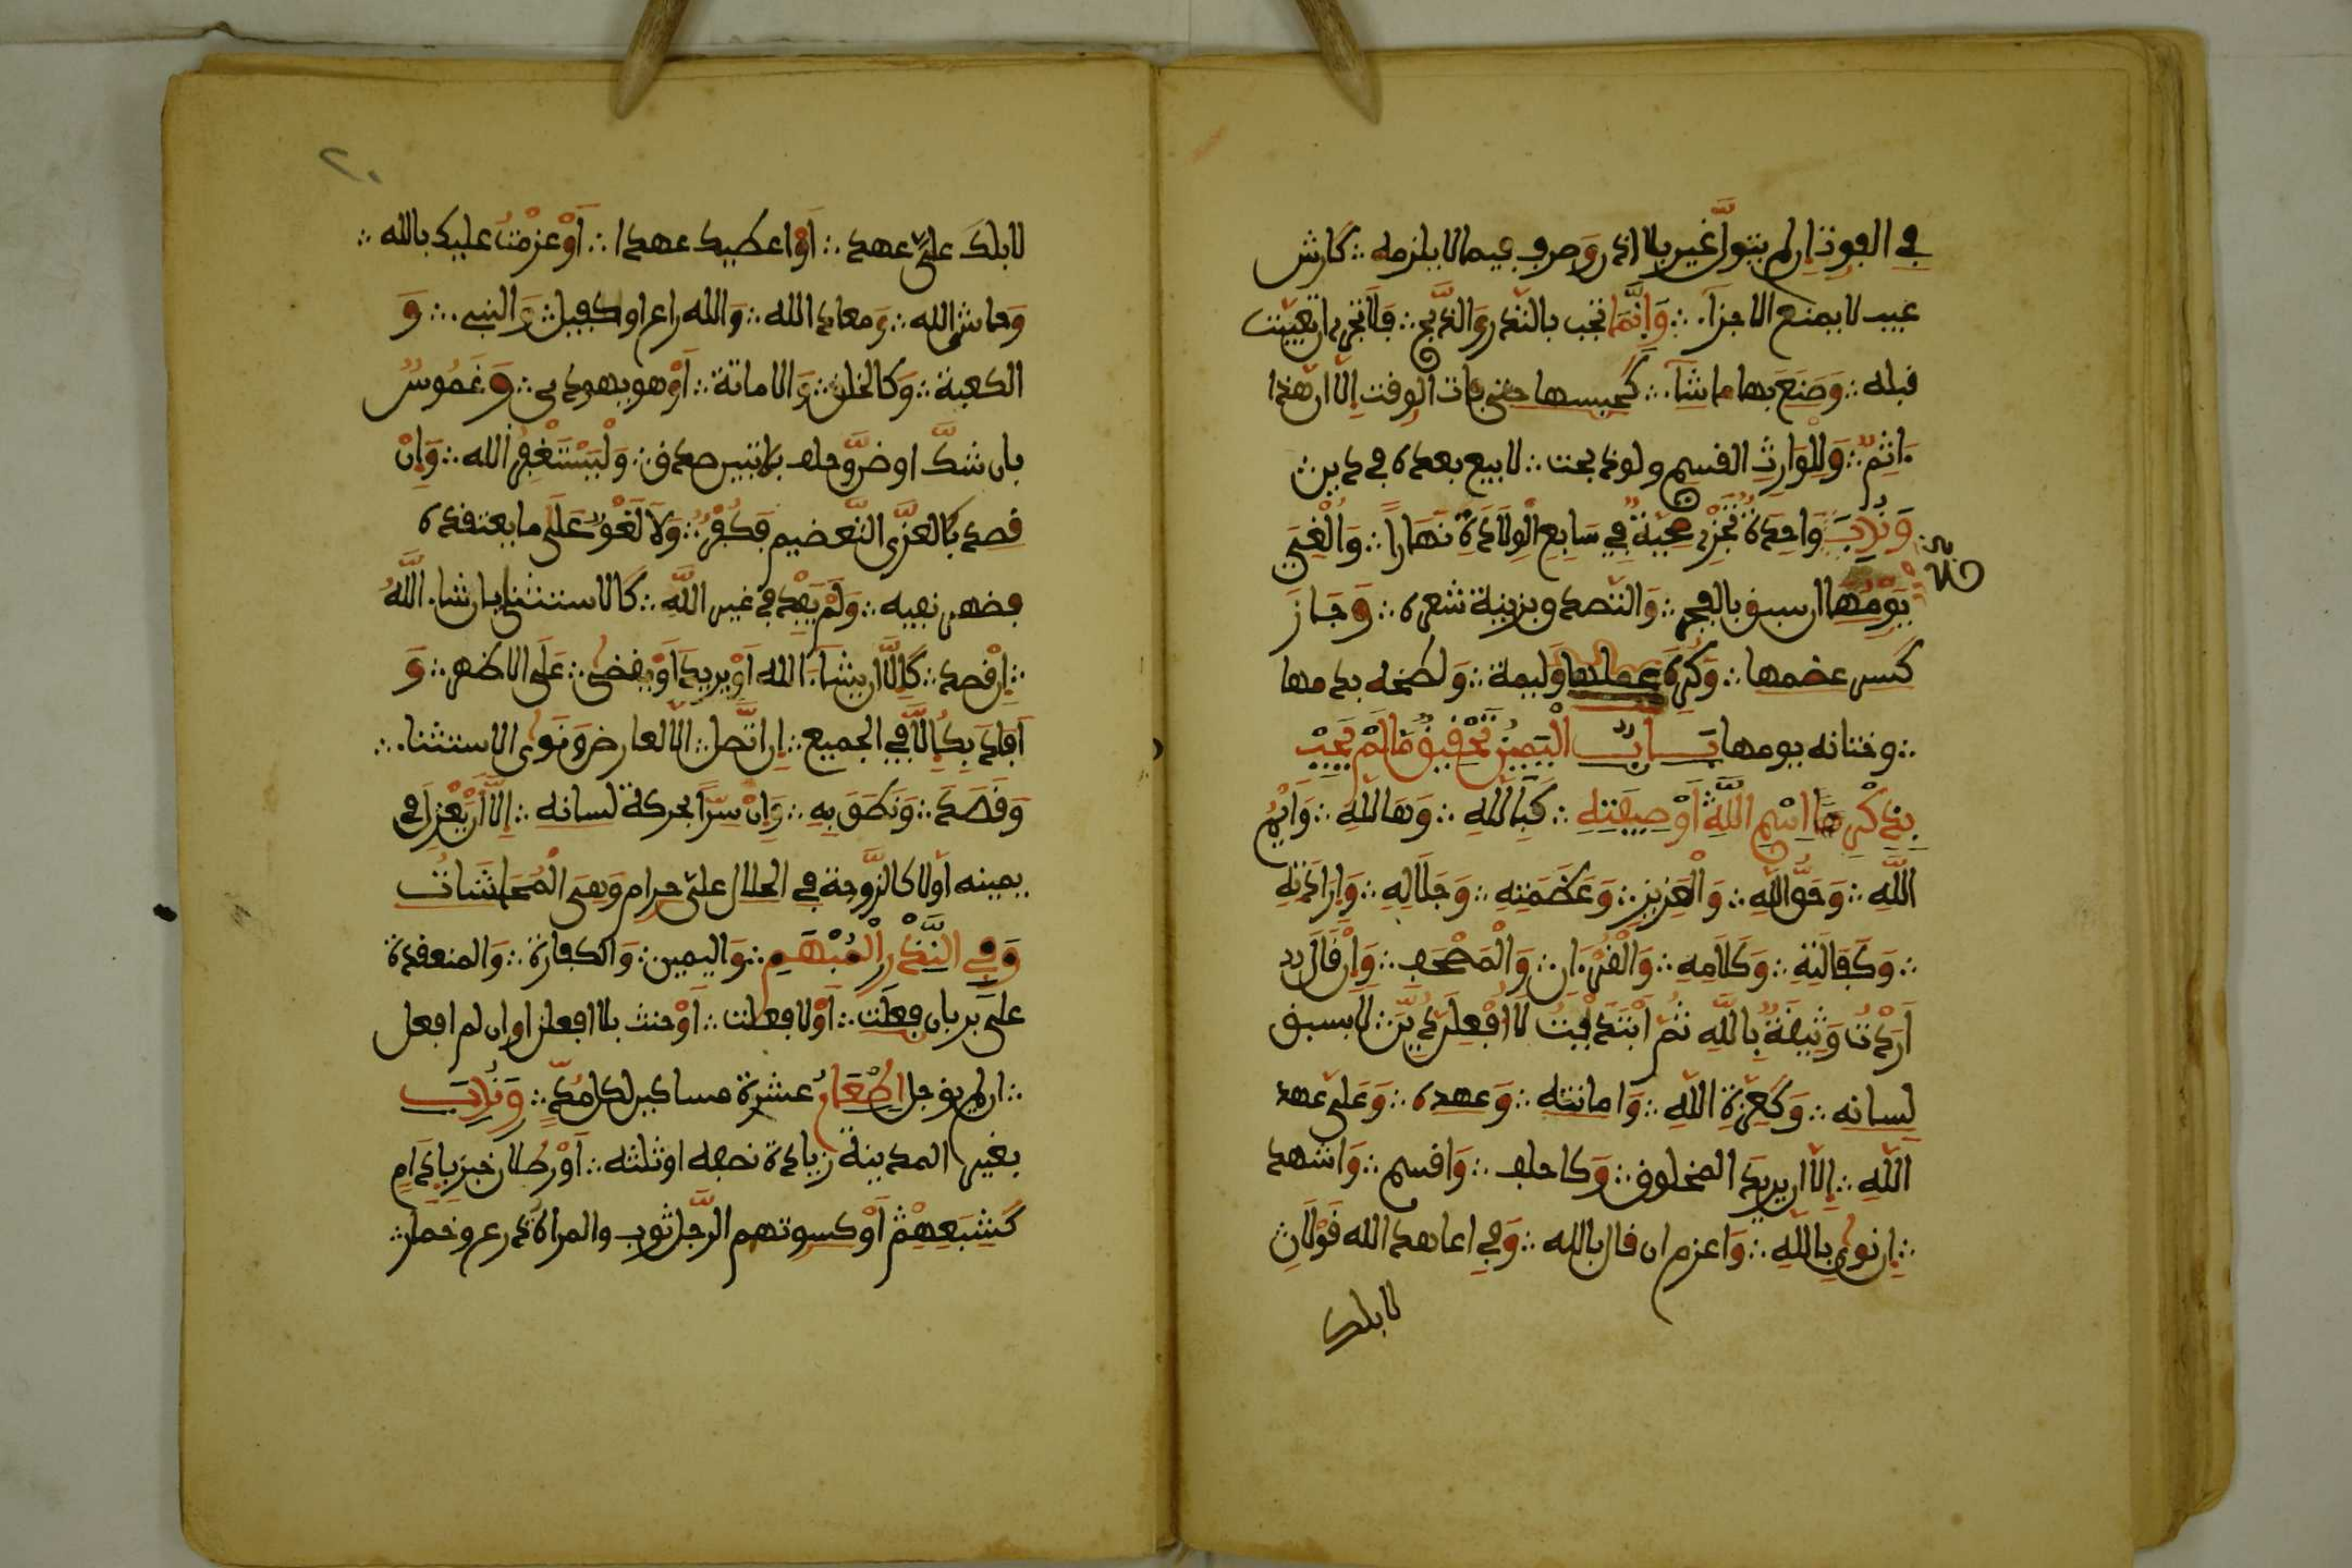 في الفوت ان لم يتول غير بلا اذن وصرف فيما لا يلزمه ∴ كارش
عيب لا يمنع الاجزآء ∴ وَإِنَّمَا تجب بالنّذر والذّبح ∴ فلا تجزء ان تعيّبت
قبله ∴ وَصَنَعَ بها ما شآء ∴ كحبسها حتى فات الوقت إلّا ان هذا
ءاثِمٌ ∴ وَلِلْوَارِثِ القسم ولو ذبحت ∴ لا بيع بعده في دين ∴
وَنُدِبَ وَاحِدَةٌ تُجْزِءُ ضحيّةً فِي سَابِعِ الْوِلَادَةِ نَهَاراً ∴ وَأُلْغِيَ
يَوْمُهَا ان سبق بالفجر ∴ وَالتّصدق بزنة شعره ∴ وَجَازَ
كسر عضمها ∴ وَكُرِهَ عملها وَليمة ∴ وَلطخه بدمها
∴ وختانه يومها بَابٌ الْيَمِينُ تَحْقِيقُ مَا لَمْ يَجِبْ
بِذِكْرِ اسْمِ اللَّهِ أَوْ صِفَتِهِ ∴ كَبِاللَّهِ ∴ وَهَاللَّهِ ∴ وَأَيْمُ
اللَّهِ ∴ وَحَقُّ اللَّهِ ∴ وَالْعَزِيزِ ∴ وَعَظَمَتِهِ ∴ وَجَلَالِهِ ∴ وَإِرَادَتِهِ
∴ وَكَفَالَتِهِ ∴ وَكَلَامِهِ ∴ وَالْقُرْءَانِ ∴ وَالْمُصْحَفِ ∴ وَإِنْ قَالَ
أَرَدْتُ وَثِيقَةٌ بِاللَّهِ ثُمَّ ابْتَدَيْتُ لَا أَفْعَلَنَّ دُيِّنَ ∴ لا بسبق
لسانه ∴ وَكَعِزّة اللّه ∴ وَامانته ∴ وَعهده ∴ وَعَلى عهد
اللّهِ ∴ إلّا ان يريد المخلوق ∴ وَكاحلف ∴ وَاقسم ∴ وَاشهد
∴ إن نوى بِاللّهِ ∴ وَاعزم ان قال بالله ∴ وَفي اعاهد الله قَوْلَانِ
لا بلك
٢٠
لا بلكَ علىّ عهد ∴ أو اعطيك عهدا ∴ أَوْ عزمْتُ عليك بالله ∴
وَحاش الله ∴ وَمعاذ الله ∴ وَالله راع او كفيل ∴ وَالنبي ∴ وَ
الكعبة ∴ وَكالخلق ∴ وَالاماتة ∴ أَوْ هو يهودي ∴ وَغَمُوسٌ
بان شكّ او ضنّ وحلف بلا تبين صدق ∴ وَلْيَسْتَغْفِرُ الله ∴ وَإِنْ
قصد بكالعزّى التّعضيم فَكُفْرٌ ∴ وَلَا لَغْوٌ عَلَى ما يعتقده
فضهر نفيه ∴ وَلَمْ يَفِدْ في غير اللَّهِ ∴ كَالاستثناء بان شاء اللَّهُ
∴ إن قصد ∴ كَإلّا ان يشآء الله أَوْ يريد أَوْ يقضى ∴ عَلَى الاظهر ∴ وَ
أَفَادَ بِكَإِلَّا فِي الجميع ∴ إِن اتَّصل ∴ الّا لعارض وَنَوَى الاستثناء ∴
وَقَصَدَ ∴ وَنَطَقَ بِهِ ∴ وَإِنْ سِرّاً بحركة لسانه ∴ إلَّا أَنْ يَّعْزِلَ في
يمينه أوّلا كالزّوجة في الحلال علىّ حرام وَهي الْمُحَاشَاتُ
وَفِي النَّذْرِ الْمُبْهَمِ ∴ وَاليمين ∴ وَالكفارة ∴ وَالمنعقدة
عَلَى بر بان فعلت ∴ أَوْ لا فعلت ∴ أَوْ حنث بلا افعلن او ان لم افعل
∴ ان لم يؤجل اطْعَامُ عشرة مساكين لكل مُدٌّ ∴ وَنُدِبَ
بغير المدينة زيادة نصفه او ثلثه ∴ أَوْ رطلان خبز بِإِدَام
كَشِبَعِهِمْ أَوْ كسوتهم الرّجل ثوب والمرأة درع وخمار ∴